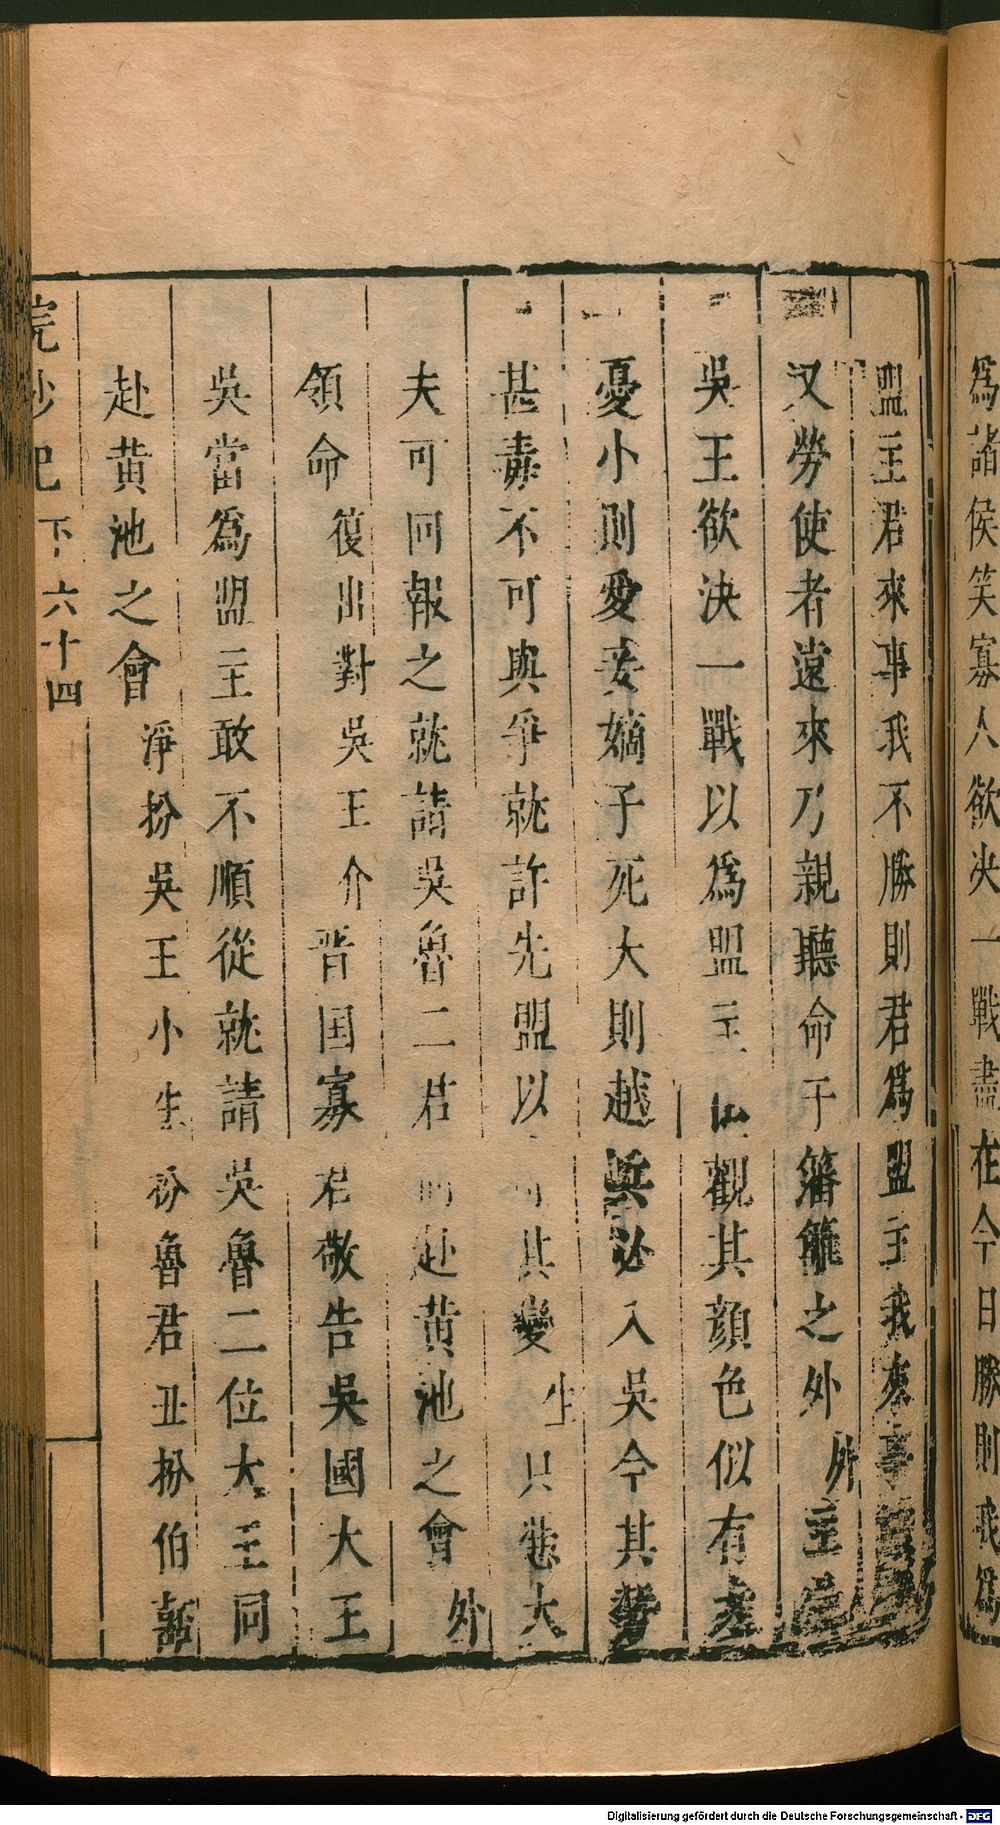 為諸侯笑寡人欲决一戰盡在今日勝則我為
盟主君來事我不勝則君為盟主我來事
又勞使者遠來乃親聽命于籓籬之外 外 主
吳王欲決一戰以為盟主 觀其顏色似有大
憂小則愛妾嫡子死大則越兵必入吳今其
甚毒不可與爭就許先盟以 其變 生 只 大
夫可回報之就請吳魯二君 赴黃池之會 外
領命 復出對吳王介 晋国寡君敬告吳國大王
吳當為盟主敢不順從就請吳魯二位大王同
赴黃池之會 淨扮吳王小生扮魯君丑扮伯嚭
浣紗記 下 六十四
Digitalisierung gefördert durch die Deutsche Forschungsgemeinschaft - DFG